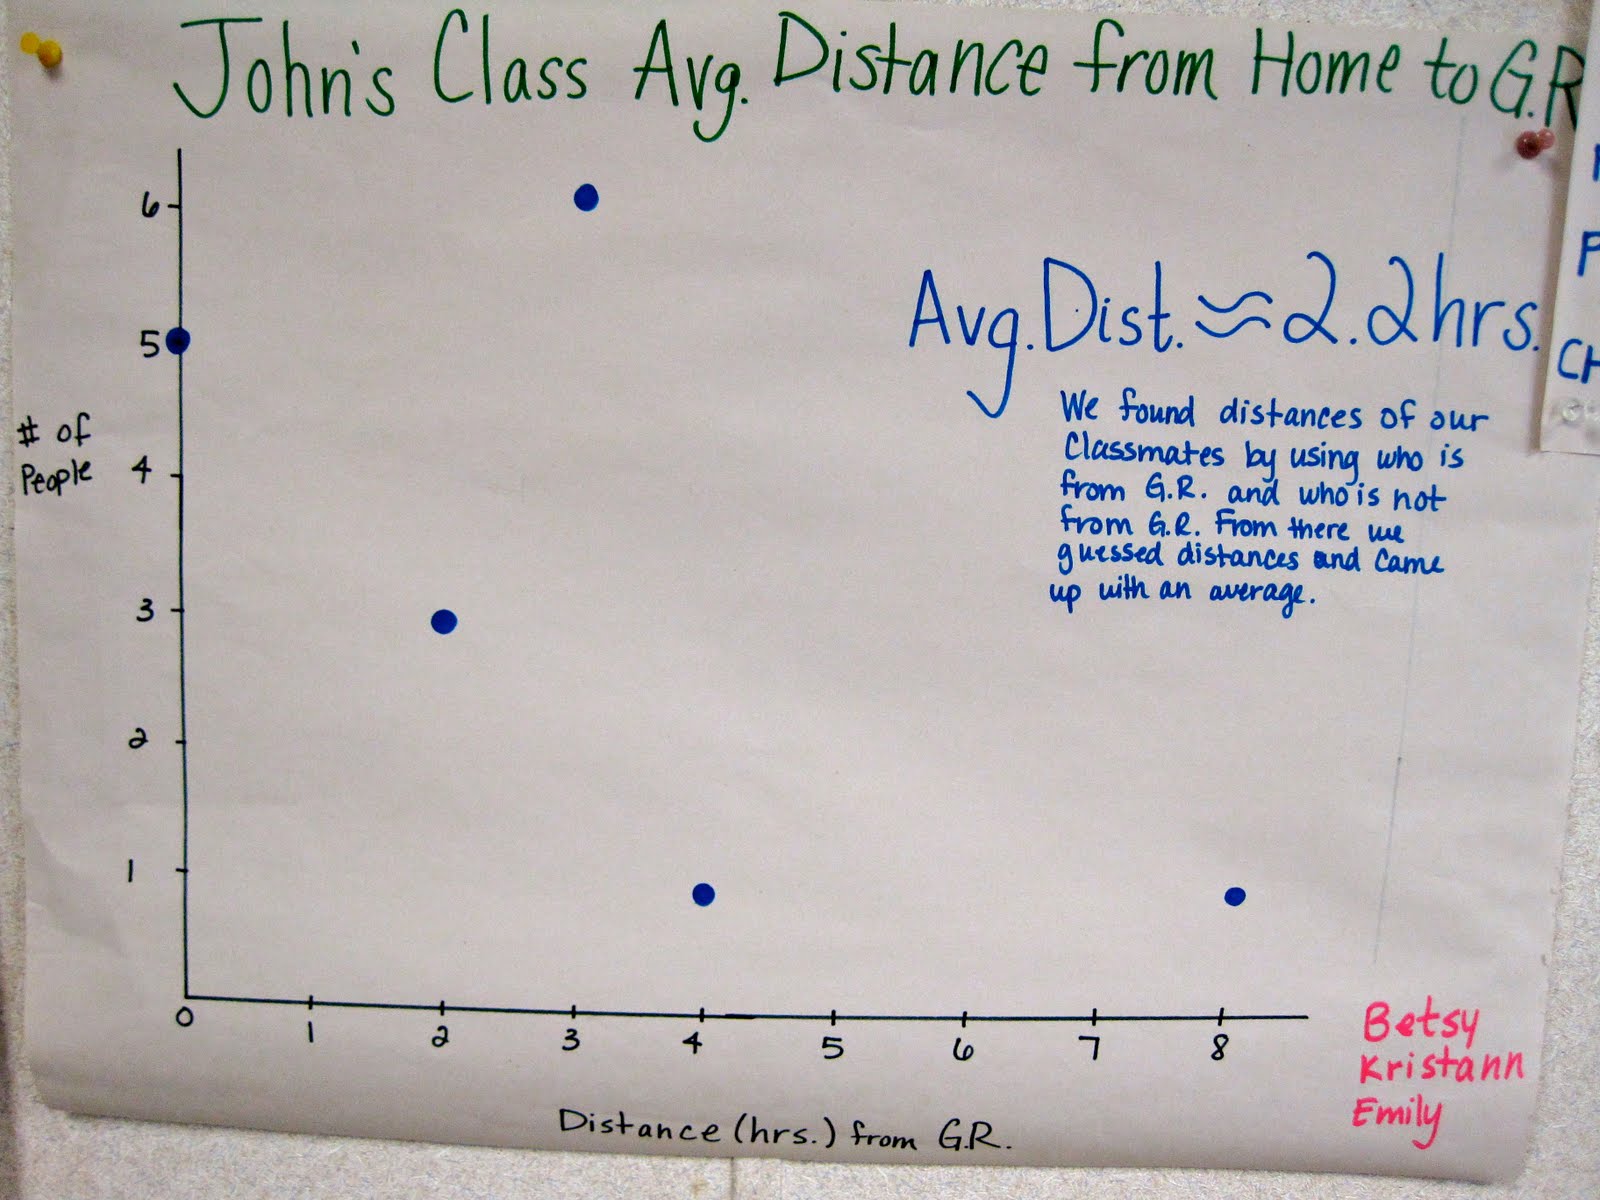 John's Class Avg. Distance from Home to G.R
Avg. Dist. ≈ 2.2hrs.
We found distances of our
Classmates by using who is
from G.R. and who is not
from G.R. From there we
guessed distances and came
up with an average.
# of
People
6
5
4
3
2
1
0 1 2 3 4 5 6 7 8
Distance (hrs.) from G.R.
Betsy
Kristann
Emily
CH